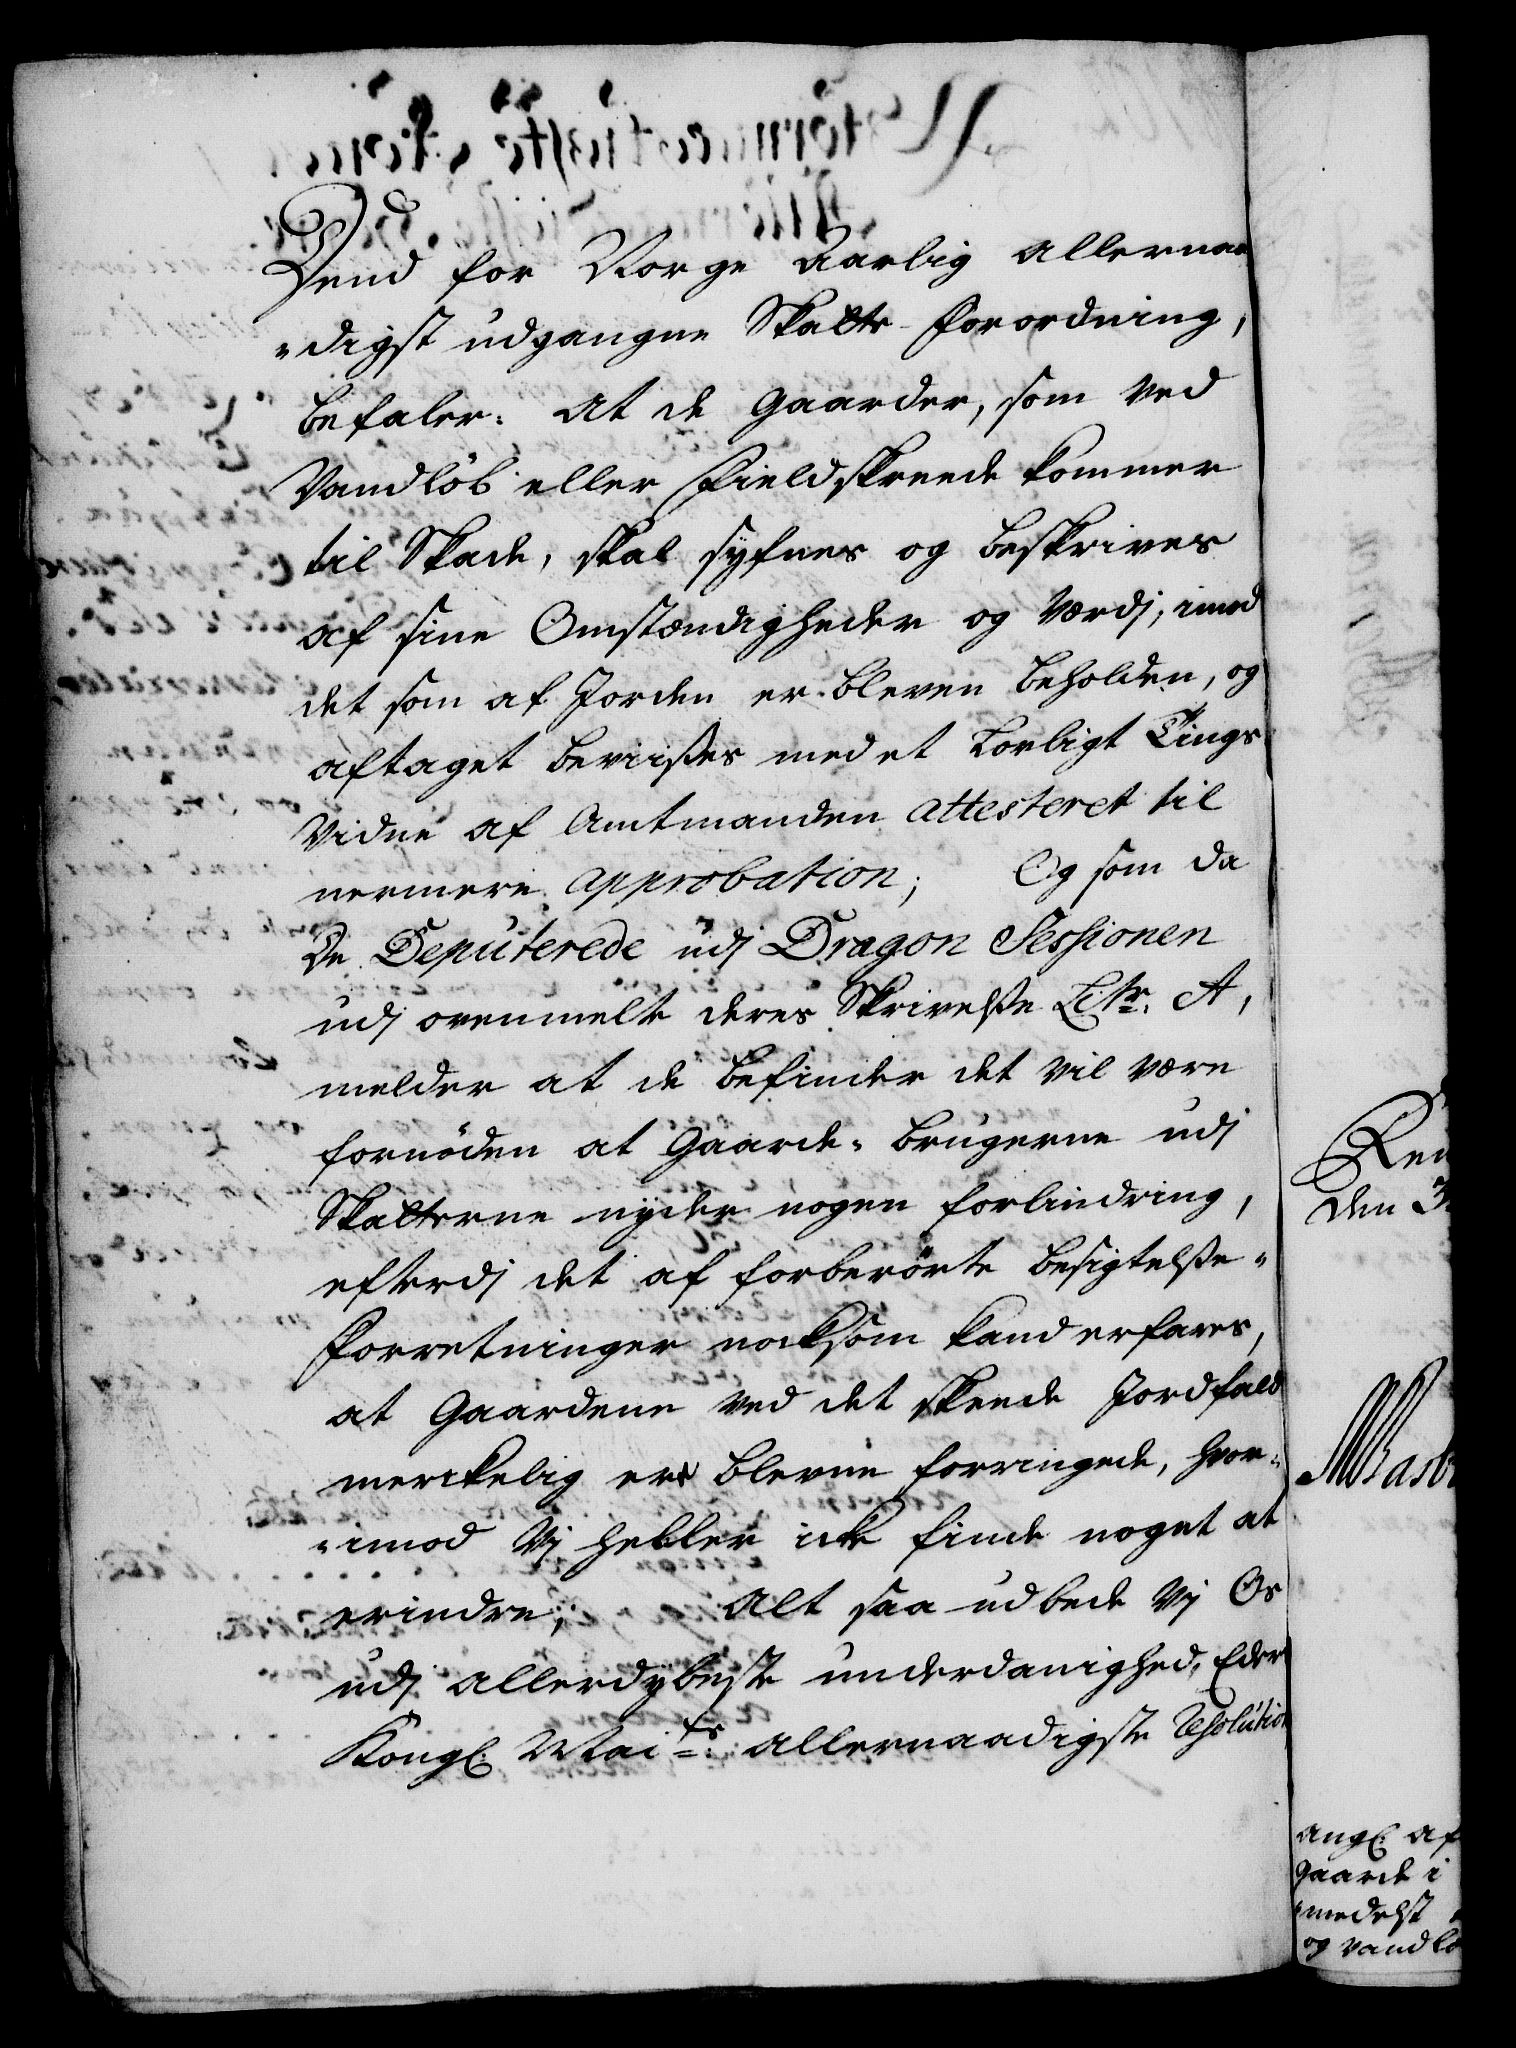 Dend for Norge aarlig allernaa
-digst udgangne Skatte-Forordning,
befaler: At de Gaarder, som ved
Vandlöb eller Fieldskreede kommer
til Skade, skal syfnes og beskrives
af sine Omstændigheder og Værdj, imod
det som af Jorden er bleven beholden, og
aftaget beviisses med et Lovligt Tings
Vidne af Amtmanden attesteret til
nermere approbation; Og som da
De Deputerede udj Dragon Sessionen
udj ovenmelte deres Skrivelsse Litr: A,
melder at de befinder det vil være
fornöden at Gaarde-brugerne udj
Skatterne nyder nogen forlindring,
efterdj det af forberörte besigtelsse-
Forretninger nocksom kand erfares,
at Gaardene ved det skeede Jordfald
merckelig er blevne forringede, hvor-
-imod Vj heller icke finde noget at
erindre; Alt saa udbede Vj Os
udj allerdybeste underdanighed, Eders
Kongl: Mai:ts allernaadigste Resolution
Ren
den 3
angl: af
Gaarde i
-medelst
og vandlö